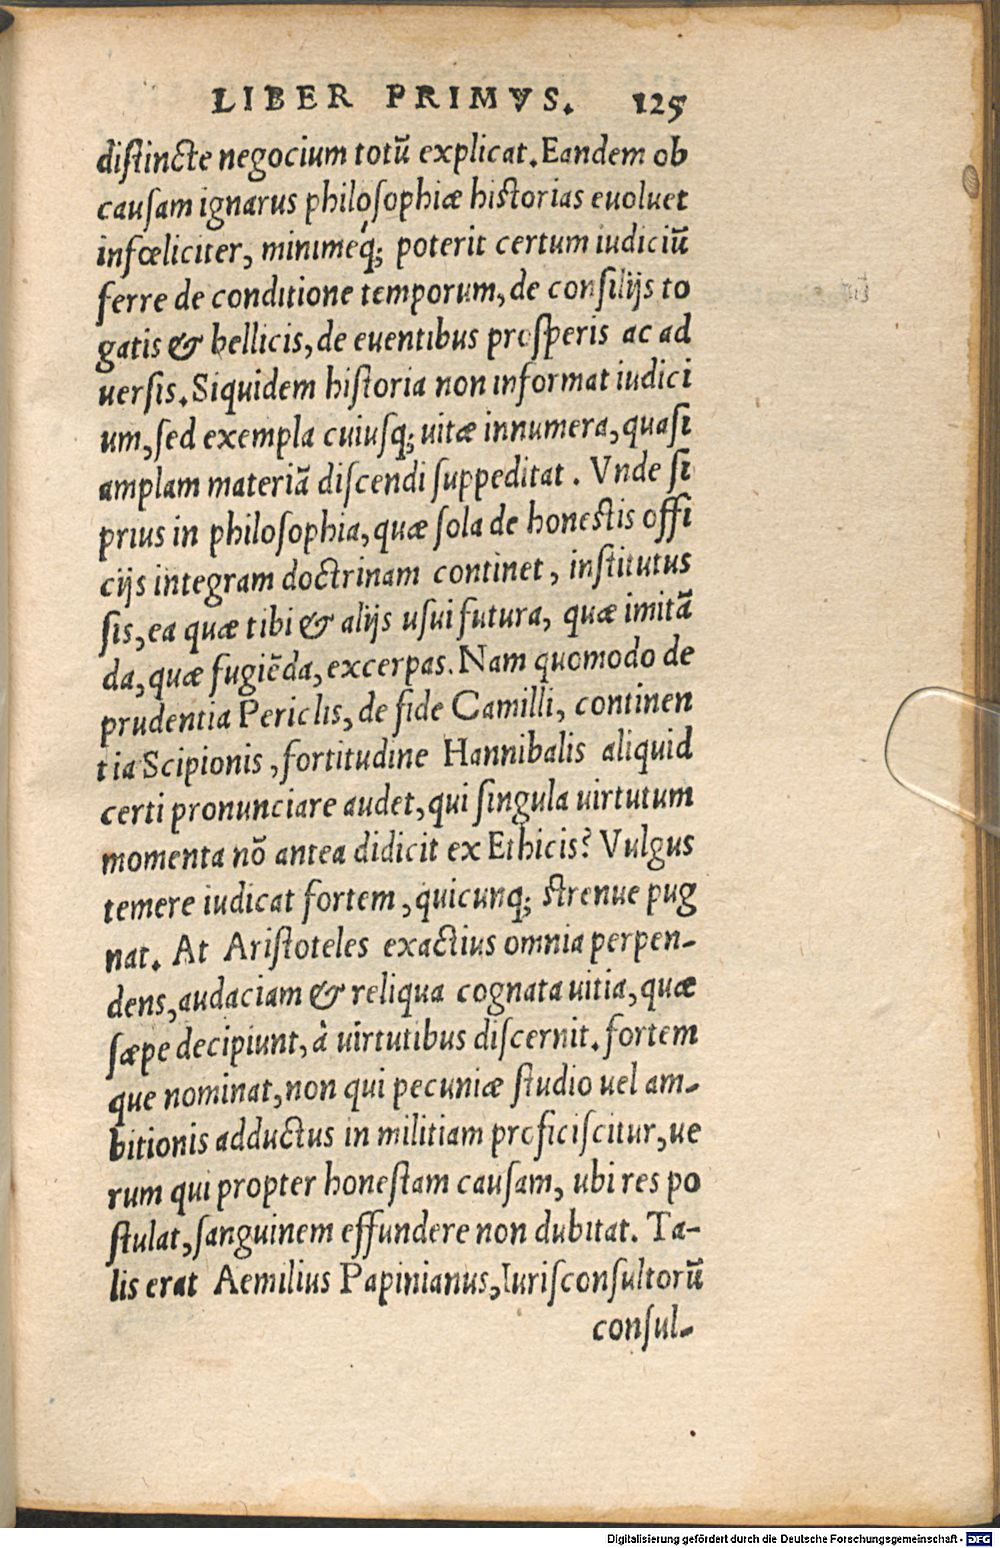 LIBER PRIMVS. 125
distincte negocium totū explicat. Eandem ob
causam ignarus philosophiæ historias euoluet
infœliciter, minimeq́; poterit certum iudiciū
ferre de conditione temporum, de consilijs to
gatis & bellicis, de euentibus prosperis ac ad
uersis. Siquidem historia non informat iudici
um, sed exempla cuiusq; uitæ innumera, quasi
amplam materiā discendi suppeditat. Vnde si
prius in philosophia, quæ sola de honestis offi
cijs integram doctrinam continet, institutus
sis, ea quæ tibi & alijs usui futura, quæ imitā
da, quæ fugiēda, excerpas. Nam quomodo de
prudentia Periclis, de fide Camilli, continen
tia Scipionis, fortitudine Hannibalis aliquid
certi pronunciare audet, qui singula uirtutum
momenta nō antea didicit ex Ethicis? Vulgus
temere iudicat fortem, quicunq; strenue pug
nat. At Aristoteles exactius omnia perpen-
dens, audaciam & reliqua cognata uitia, quæ
sæpe decipiunt, à uirtutibus discernit. fortem
que nominat, non qui pecuniæ studio uel am-
bitionis adductus in militiam proficiscitur, ue
rum qui propter honestam causam, ubi res po
stulat, sanguinem effundere non dubitat. Ta-
lis erat Aemilius Papinianus, Iurisconsultorū
consul-
Digitalisierung gefördert durch die Deutsche Forschungsgemeinschaft - DFG